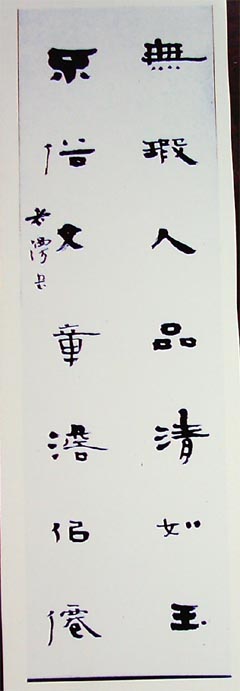 無瑕人品清如玉
不俗文章澹佀僊